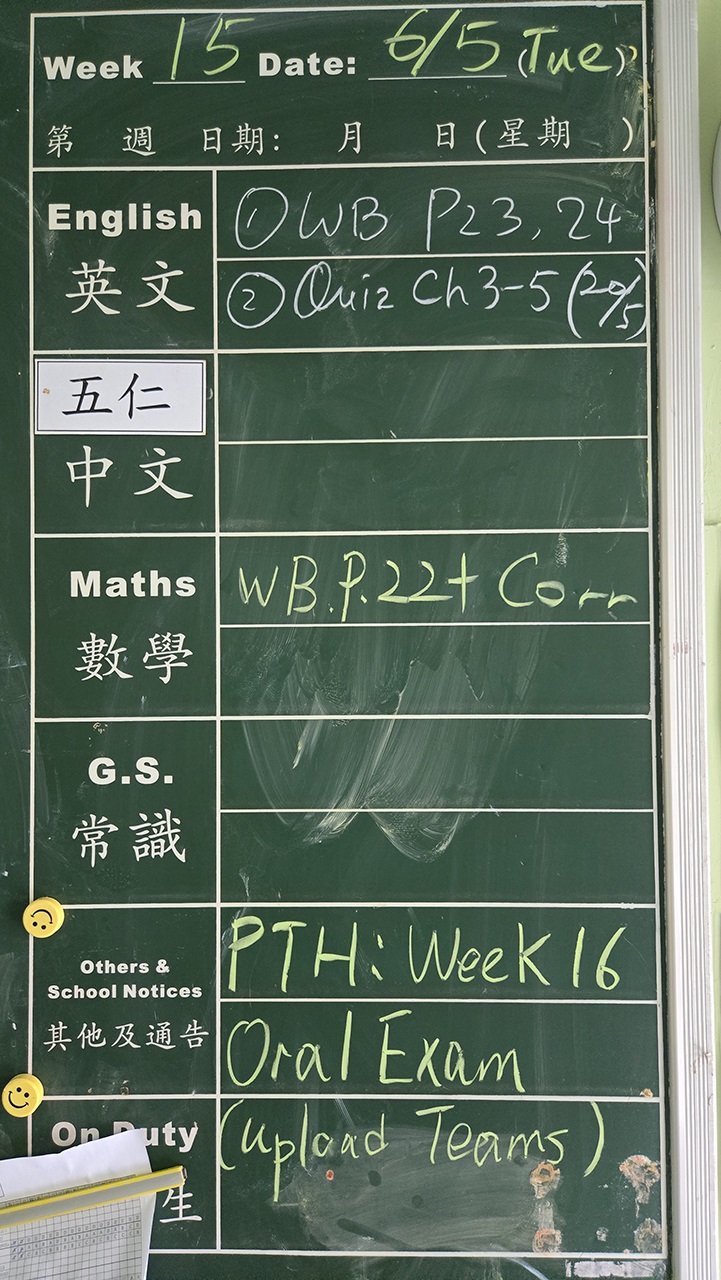 Week 15 Date: 6/5 (Tue)
第 週 日期: 月 日(星期 )
English ① WB P23, 24
英文 ② Quiz Ch 3-5 (20/5)
五仁
中文
Maths WB.P.22+ Corr
數學
G.S.
常識
PTH: Week 16
Others &
School Notices
其他及通告 Oral Exam
On Duty (upload Teams)
生